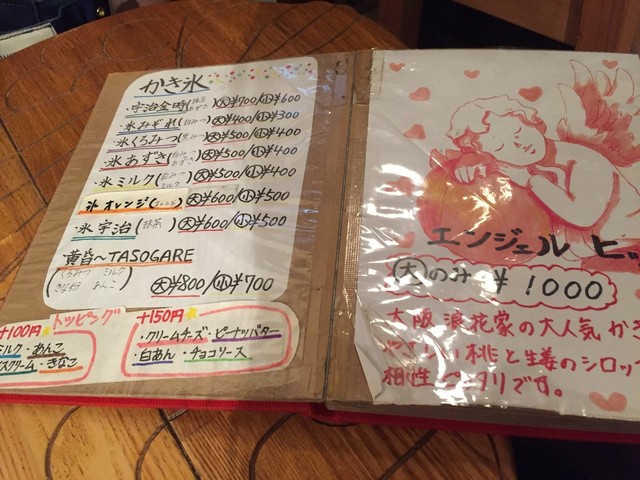 かき氷
・宇治金時(抹茶 あずき) 大¥700/小¥600
・氷みぞれ(白みつ) 大¥400/小¥300
・氷くろみつ(黒みつ) 大¥500/小¥400
・氷あずき 大¥500/小¥400
・氷ミルク(白みつ ミルク) 大¥500/小¥400
氷オレンジ 大¥600/小¥500
・氷宇治(抹茶) 大¥600/小¥500
黄昏〜TASOGARE
(くろみつ ミルク
きな粉 あんこ) 大¥800/小¥700
トッピング
+100円
ミルク・あんこ
スクリーム・きなこ
+150円
・クリームチーズ・ピーナッツバター
・白あん・チョコソース
エンジェル ビ
大のみ ¥1000
大阪 浪花家の大人気 かき
桃と生姜のシロッ
相性 ピッタリです。